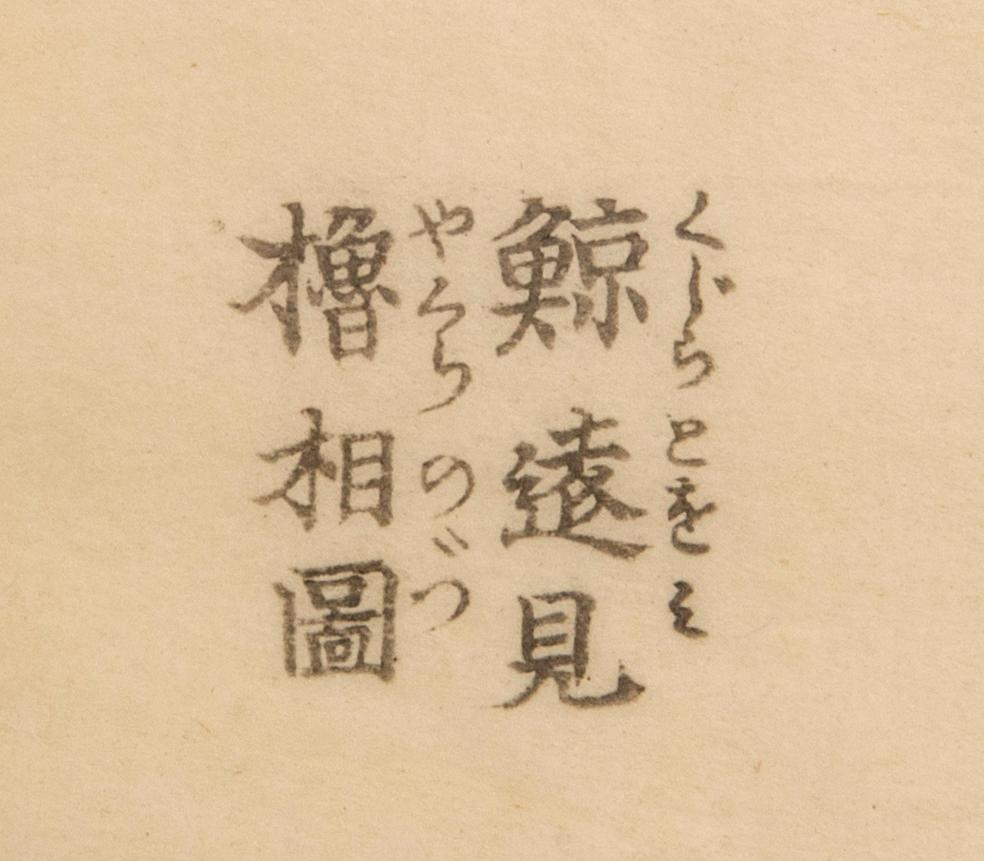 くじらとをミ
鯨遠見
やくらのづ
櫓相圖